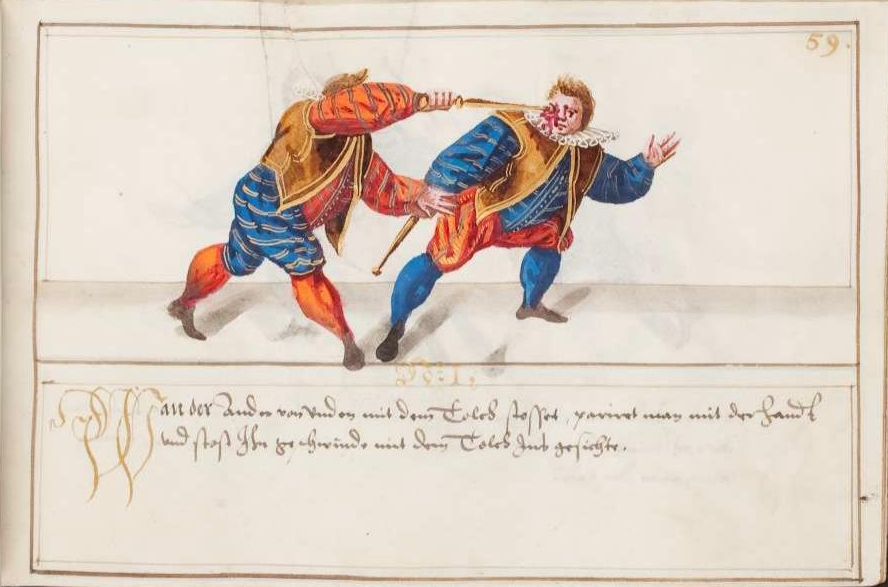 59.
No: 1.
Wan der Ander von Unden mit dem Tolch stosset, pariret man mit der handt
und stost Ihn geschwinde mit dem Tolch Ins gesichte.